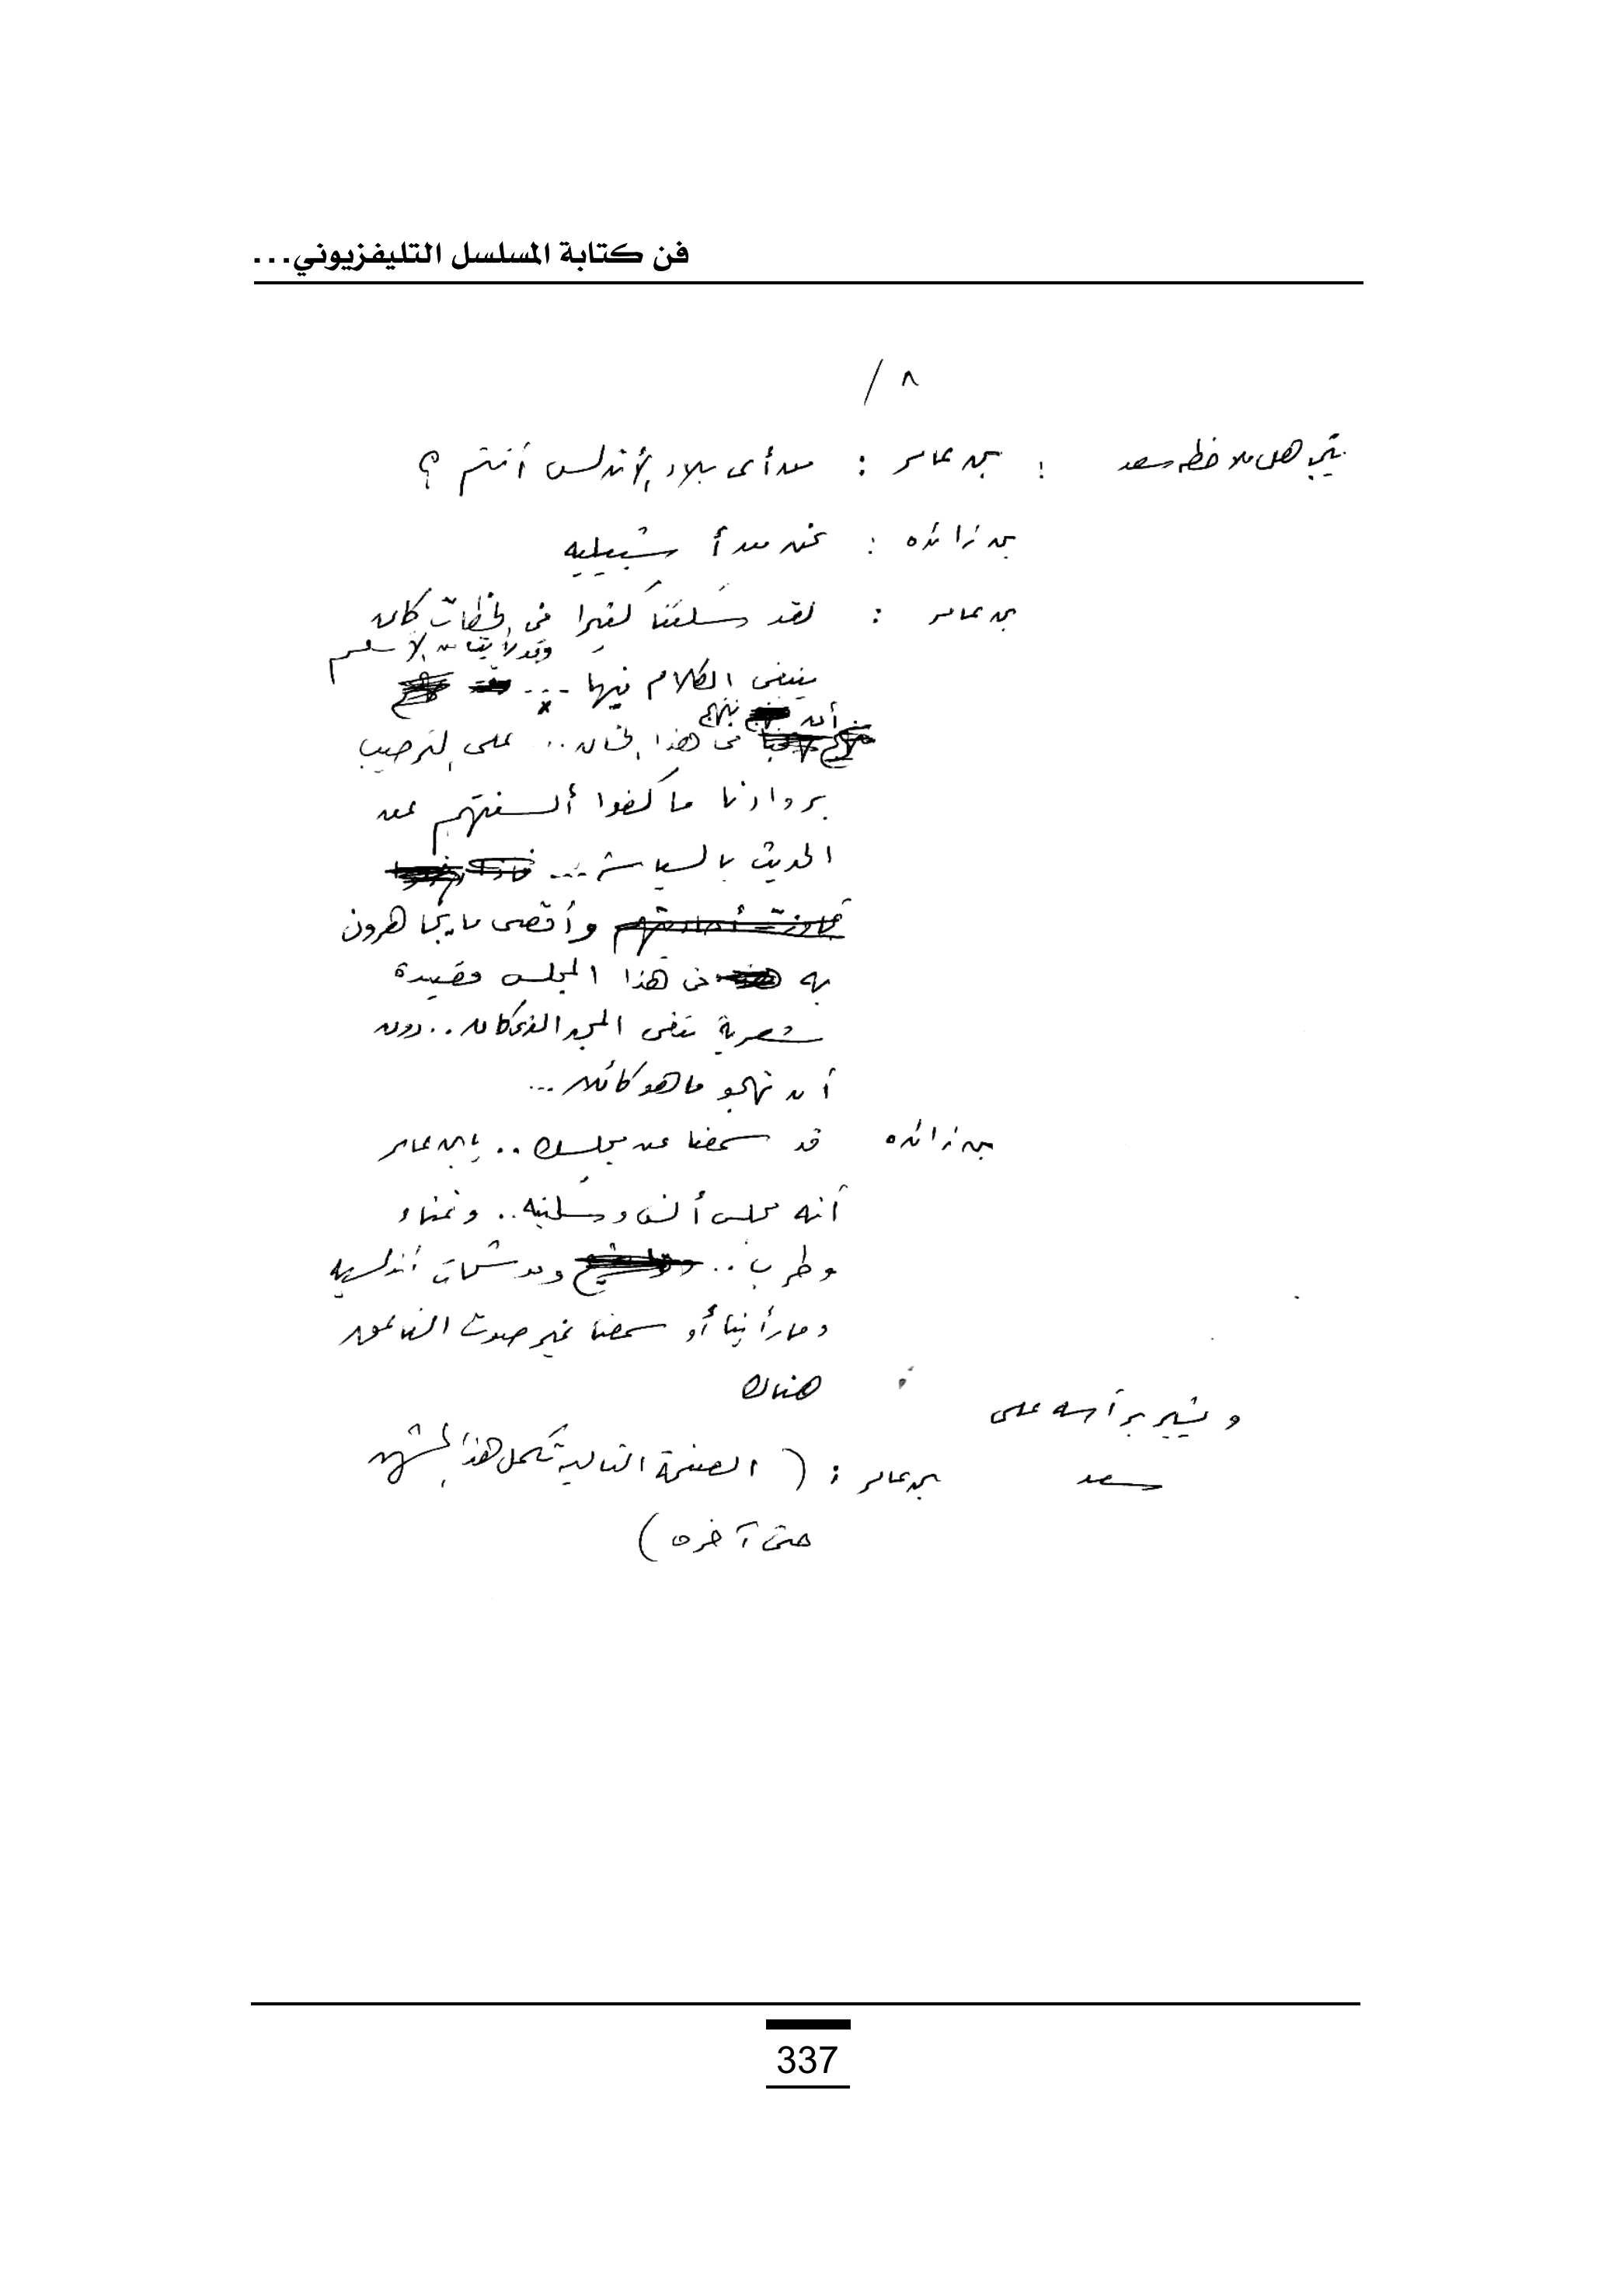 فن كتابة المسلسل التليفزيوني...
٨ /
يتجاهل ملاحظه سعد : بن عامر : من أى بلاد الأندلس أنتم ؟
بن زائده : نحن من أشبيليه
بن عامر : لقد سكتنا كثيرا فى لحظات كان
وقد رأيت من الأسلم
ينبغى الكلام فيها ...
أن ننهج
فى هذا الخان .. على الترحيب
بروادنا ما كفوا ألسنتهم عن
الحديث بالسياسة ...
وأقصى ما يجاهرون
به فى هذا المجلس قصيدة
شعرية تنعى المجد الذى كان .. دون
أن تهجو ما هو كائن ...
بن زائده قد سمعنا عن مجلسك .. يا بن عامر
أنه مجلس أنس وسكينه .. وغناء
وطرب .. وموشحات أندلسيه
وما رأينا أو سمعنا غير صوت الناعق
هناك :
ويشير برأسه على
سعد بن عامر : ( الصفحة التالية تكمل هذا المشهد
حتى آخره )
337